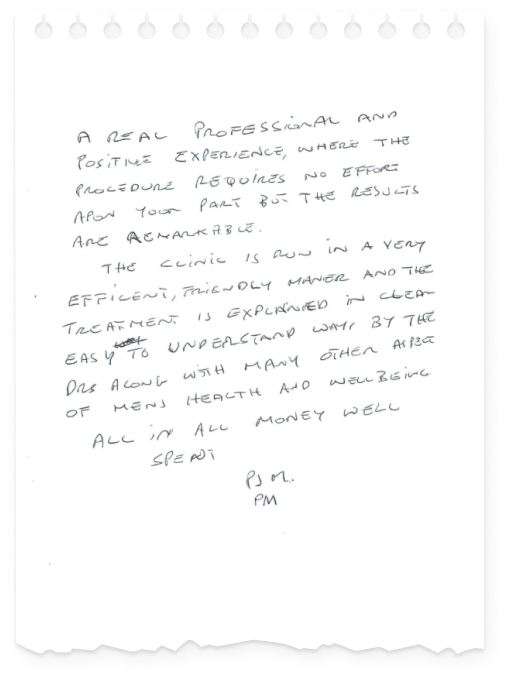 A REAL PROFESSIONAL AND
POSITIVE EXPERIENCE, WHERE THE
PROCEDURE REQUIRES NO EFFORT
APON YOUR PART BUT THE RESULTS
ARE REMARKABLE.
THE CLINIC IS RUN IN A VERY
EFFICENT, FRIENDLY MANER AND THE
TREATMENT IS EXPLAINED IN CLEAR
EASY TO UNDERSTAND WAY, BY THE
DRS ALONG WITH MANY OTHER ASPEC
OF MENS HEALTH AND WELLBEING
ALL IN ALL MONEY WELL
SPENT
PJ M.
PM